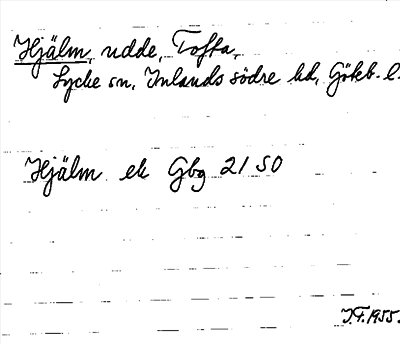 Hjälm, udde, Tofta,
Lycke sn, Inlands södre hd, Göteb. l.
Hjälm ek Gbg 21 SO
J.F. 1955.